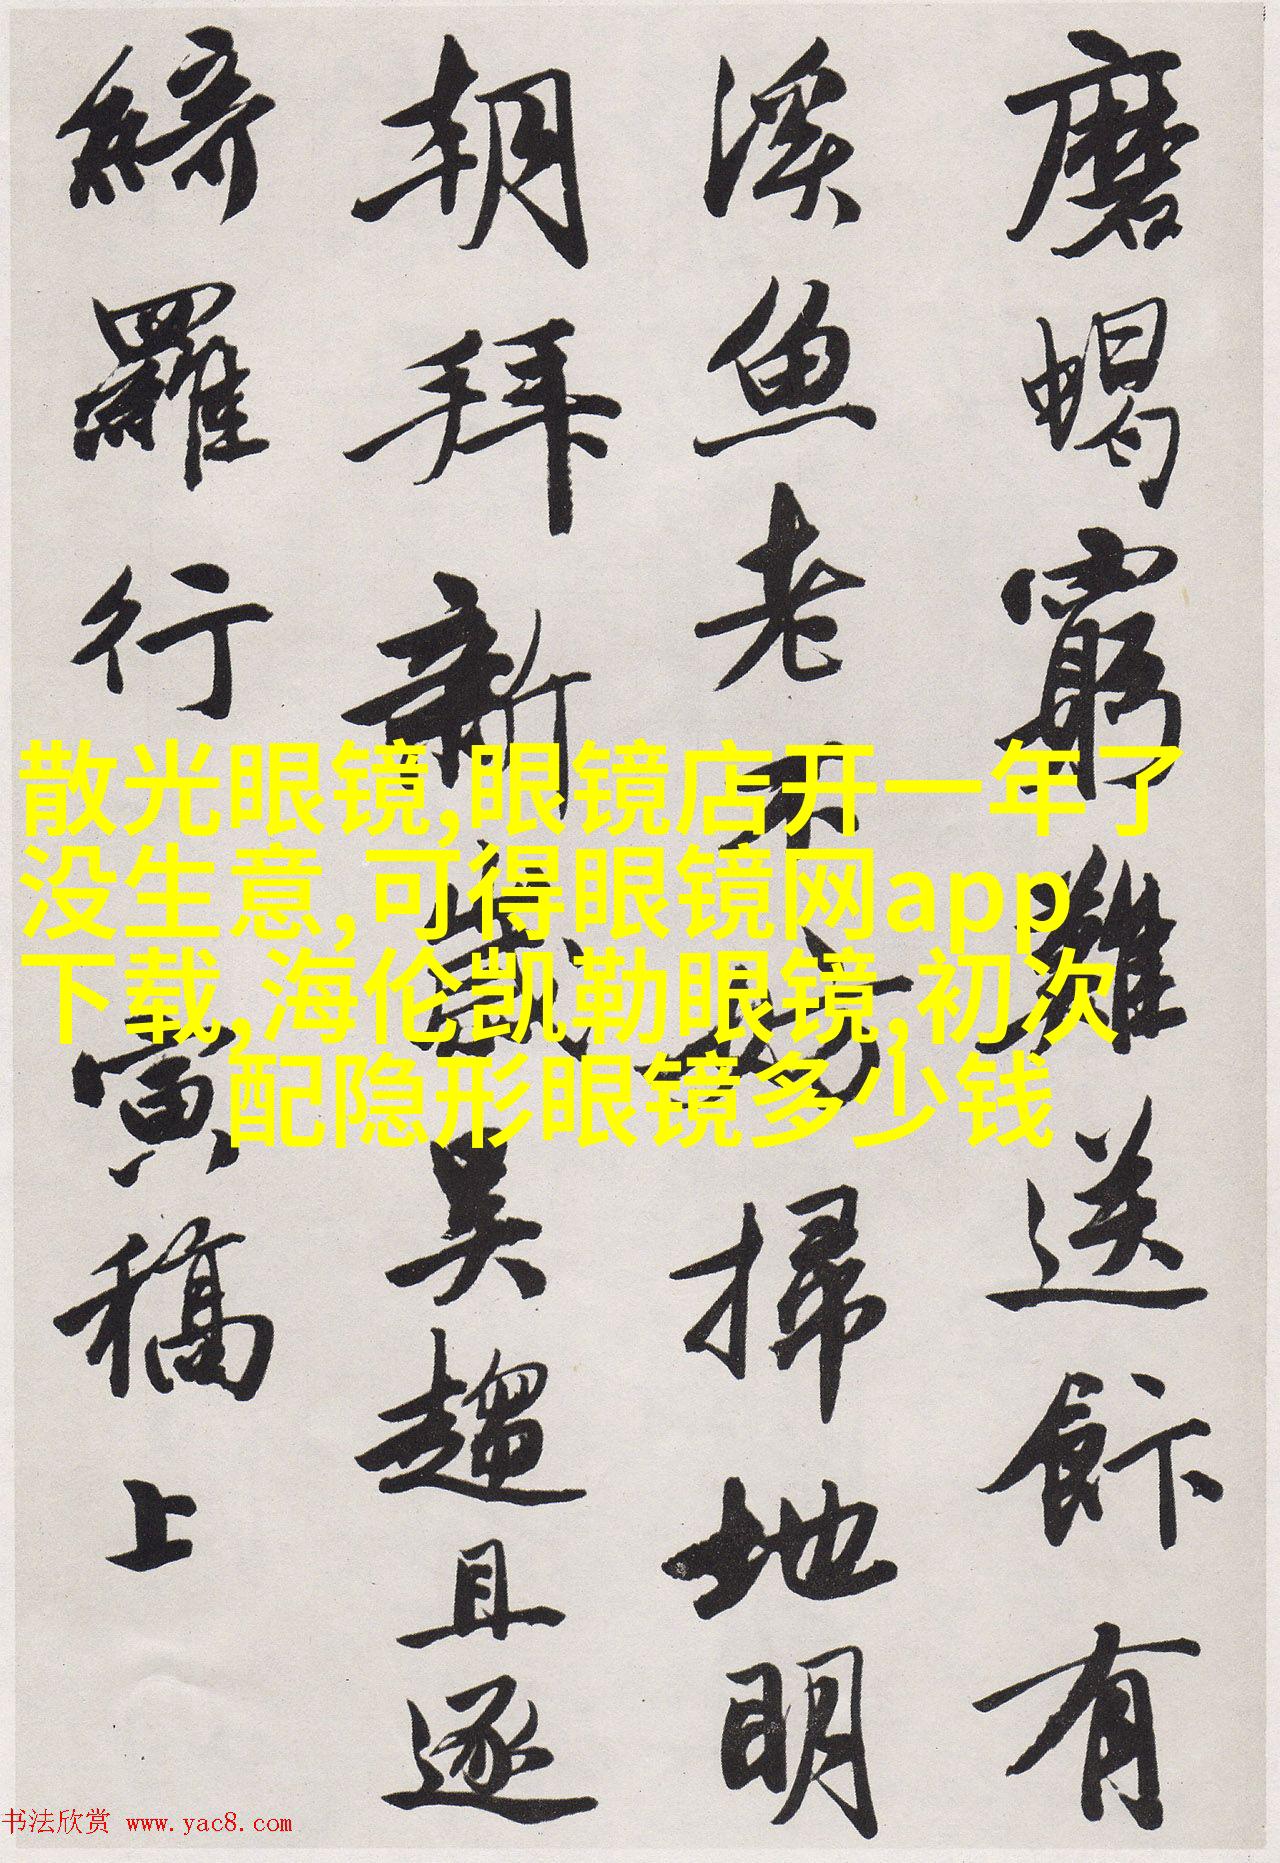 磨蝎窮難送飰有
溪魚老不妨掃地明
朝拜新歲吳趨且逐
綺羅行 寅稿上
散光眼镜,眼镜店开一年了
没生意,可得眼镜网app
下载,海伦凯勒眼镜,初次
配隐形眼镜多少钱
书法欣赏 www.yac8.com